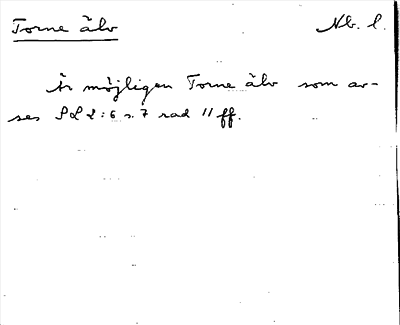 Torne älv Nb. l.
Är möjligen Torne älv som av-
ses SL 2:6 s. 7 rad 11 ff.